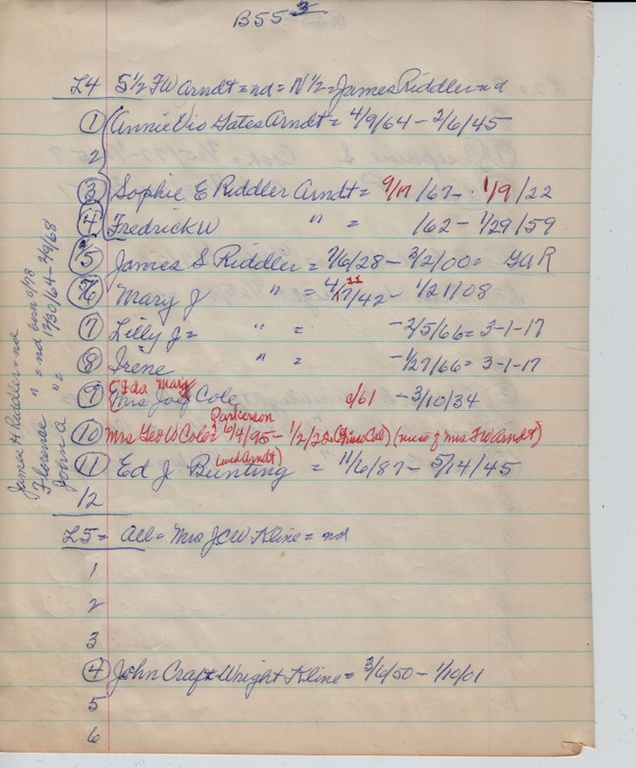 B55 3
L4 S 1/2 FW Arndt = nd = N 1/2 = James Riddler = nd
1 Annie Vio Gates Arndt = 4/9/64 - 2/6/45
2
3 Sophie E Riddler Arndt = 9/17/67 - 1/9/22
4 Fredrick W " = /62 - 1/29/59
5 James S Riddler = 7/6/28 - 3/2/00 = GAR
6 Mary J " = 4/17/42 - 1/21/08
11
7 Lilly J = " = - 2/5/66 = 3-1-17
8 Irene " = - 1/27/66 = 3-1-17
Ida Mary
9 Mrs Cole c/61 - 3/10/34
Parkerson
10 Mrs Geo W Cole = 6/4/95 - 1/2/22 (niece of Mrs FW Arndt)
(Arndt)
11 Ed J Bunting = 11/6/87 - 5/14/45
12
L5 = All = Mrs JCW Kline = nd
1
2
3
4 John Craft Wright Kline = 3/6/50 - 1/10/01
5
6
James H Riddler = nd
Florence " = nd
John A " = 12/30/64 - 2/9/68